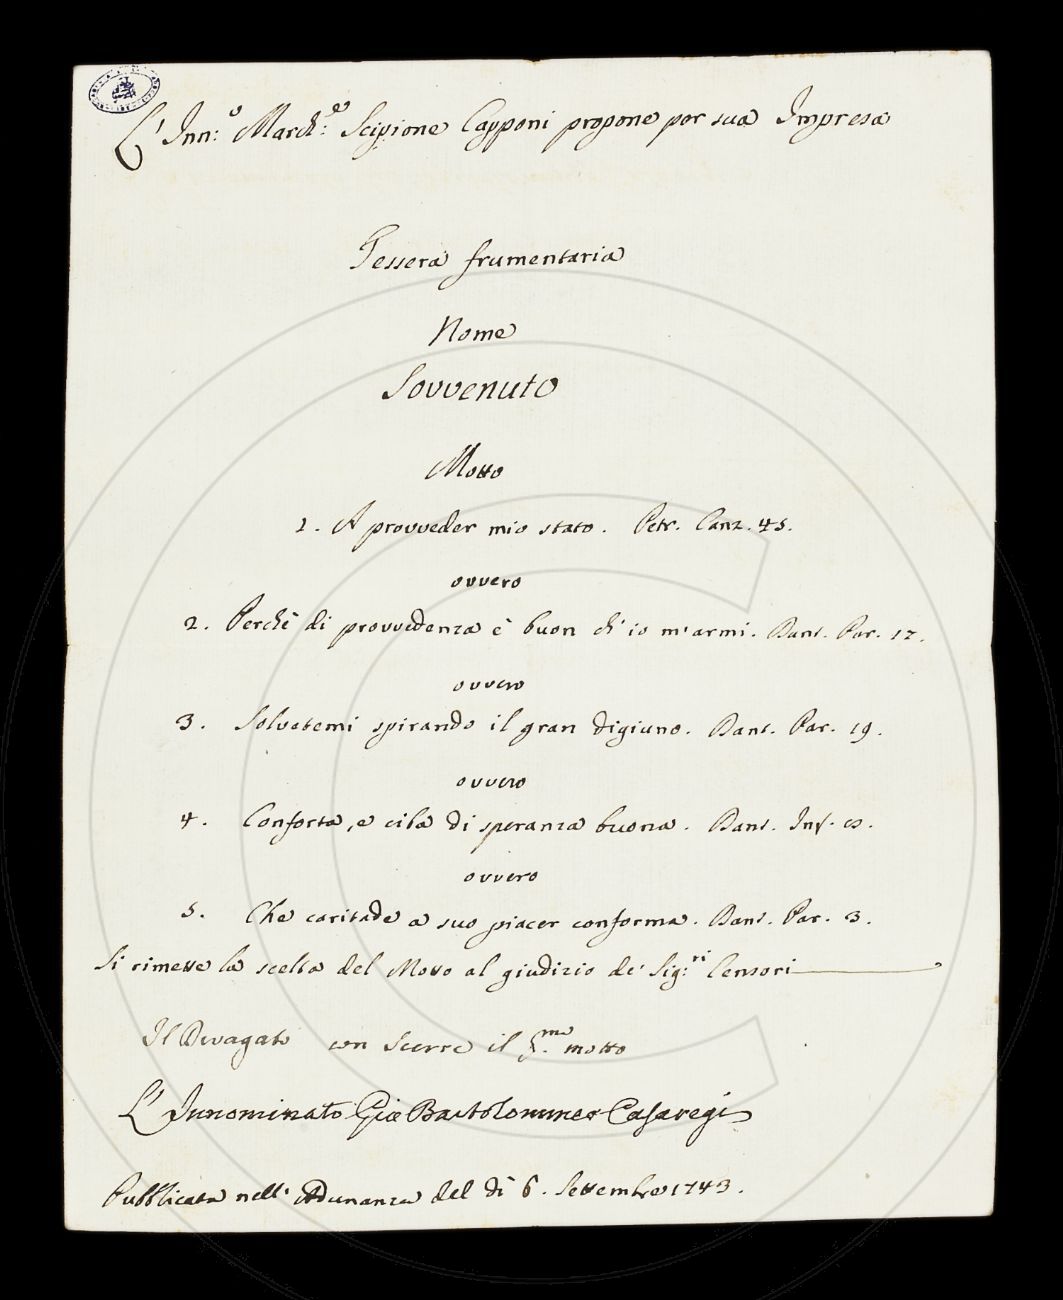 L' Inn:º March:e Scipione Capponi propone per sua Impresa
Tessera frumentaria
Nome
Sovvenuto
Motto
1. A provveder mio stato. Petr. Canz. 45.
ovvero
2. Perchè di provvedenza è buon ch' io m' armi. Dant. Par. 17.
ovvero
3. Solvetemi spirando il gran digiuno. Dant. Par. 19.
ovvero
4. Conforta, e ciba di speranza buona. Dant. Inf. 8.
ovvero
5. Che caritade a suo piacer conforma. Dant. Par. 3.
Si rimette la scelta del Motto al giudizio de' Sig:ri Censori
Il Divagato con Scerre il motto
L' Innominato Gio Bartolommeo Casaregi
Pubblicata nell' Adunanza del dì 6. Settembre 1743.